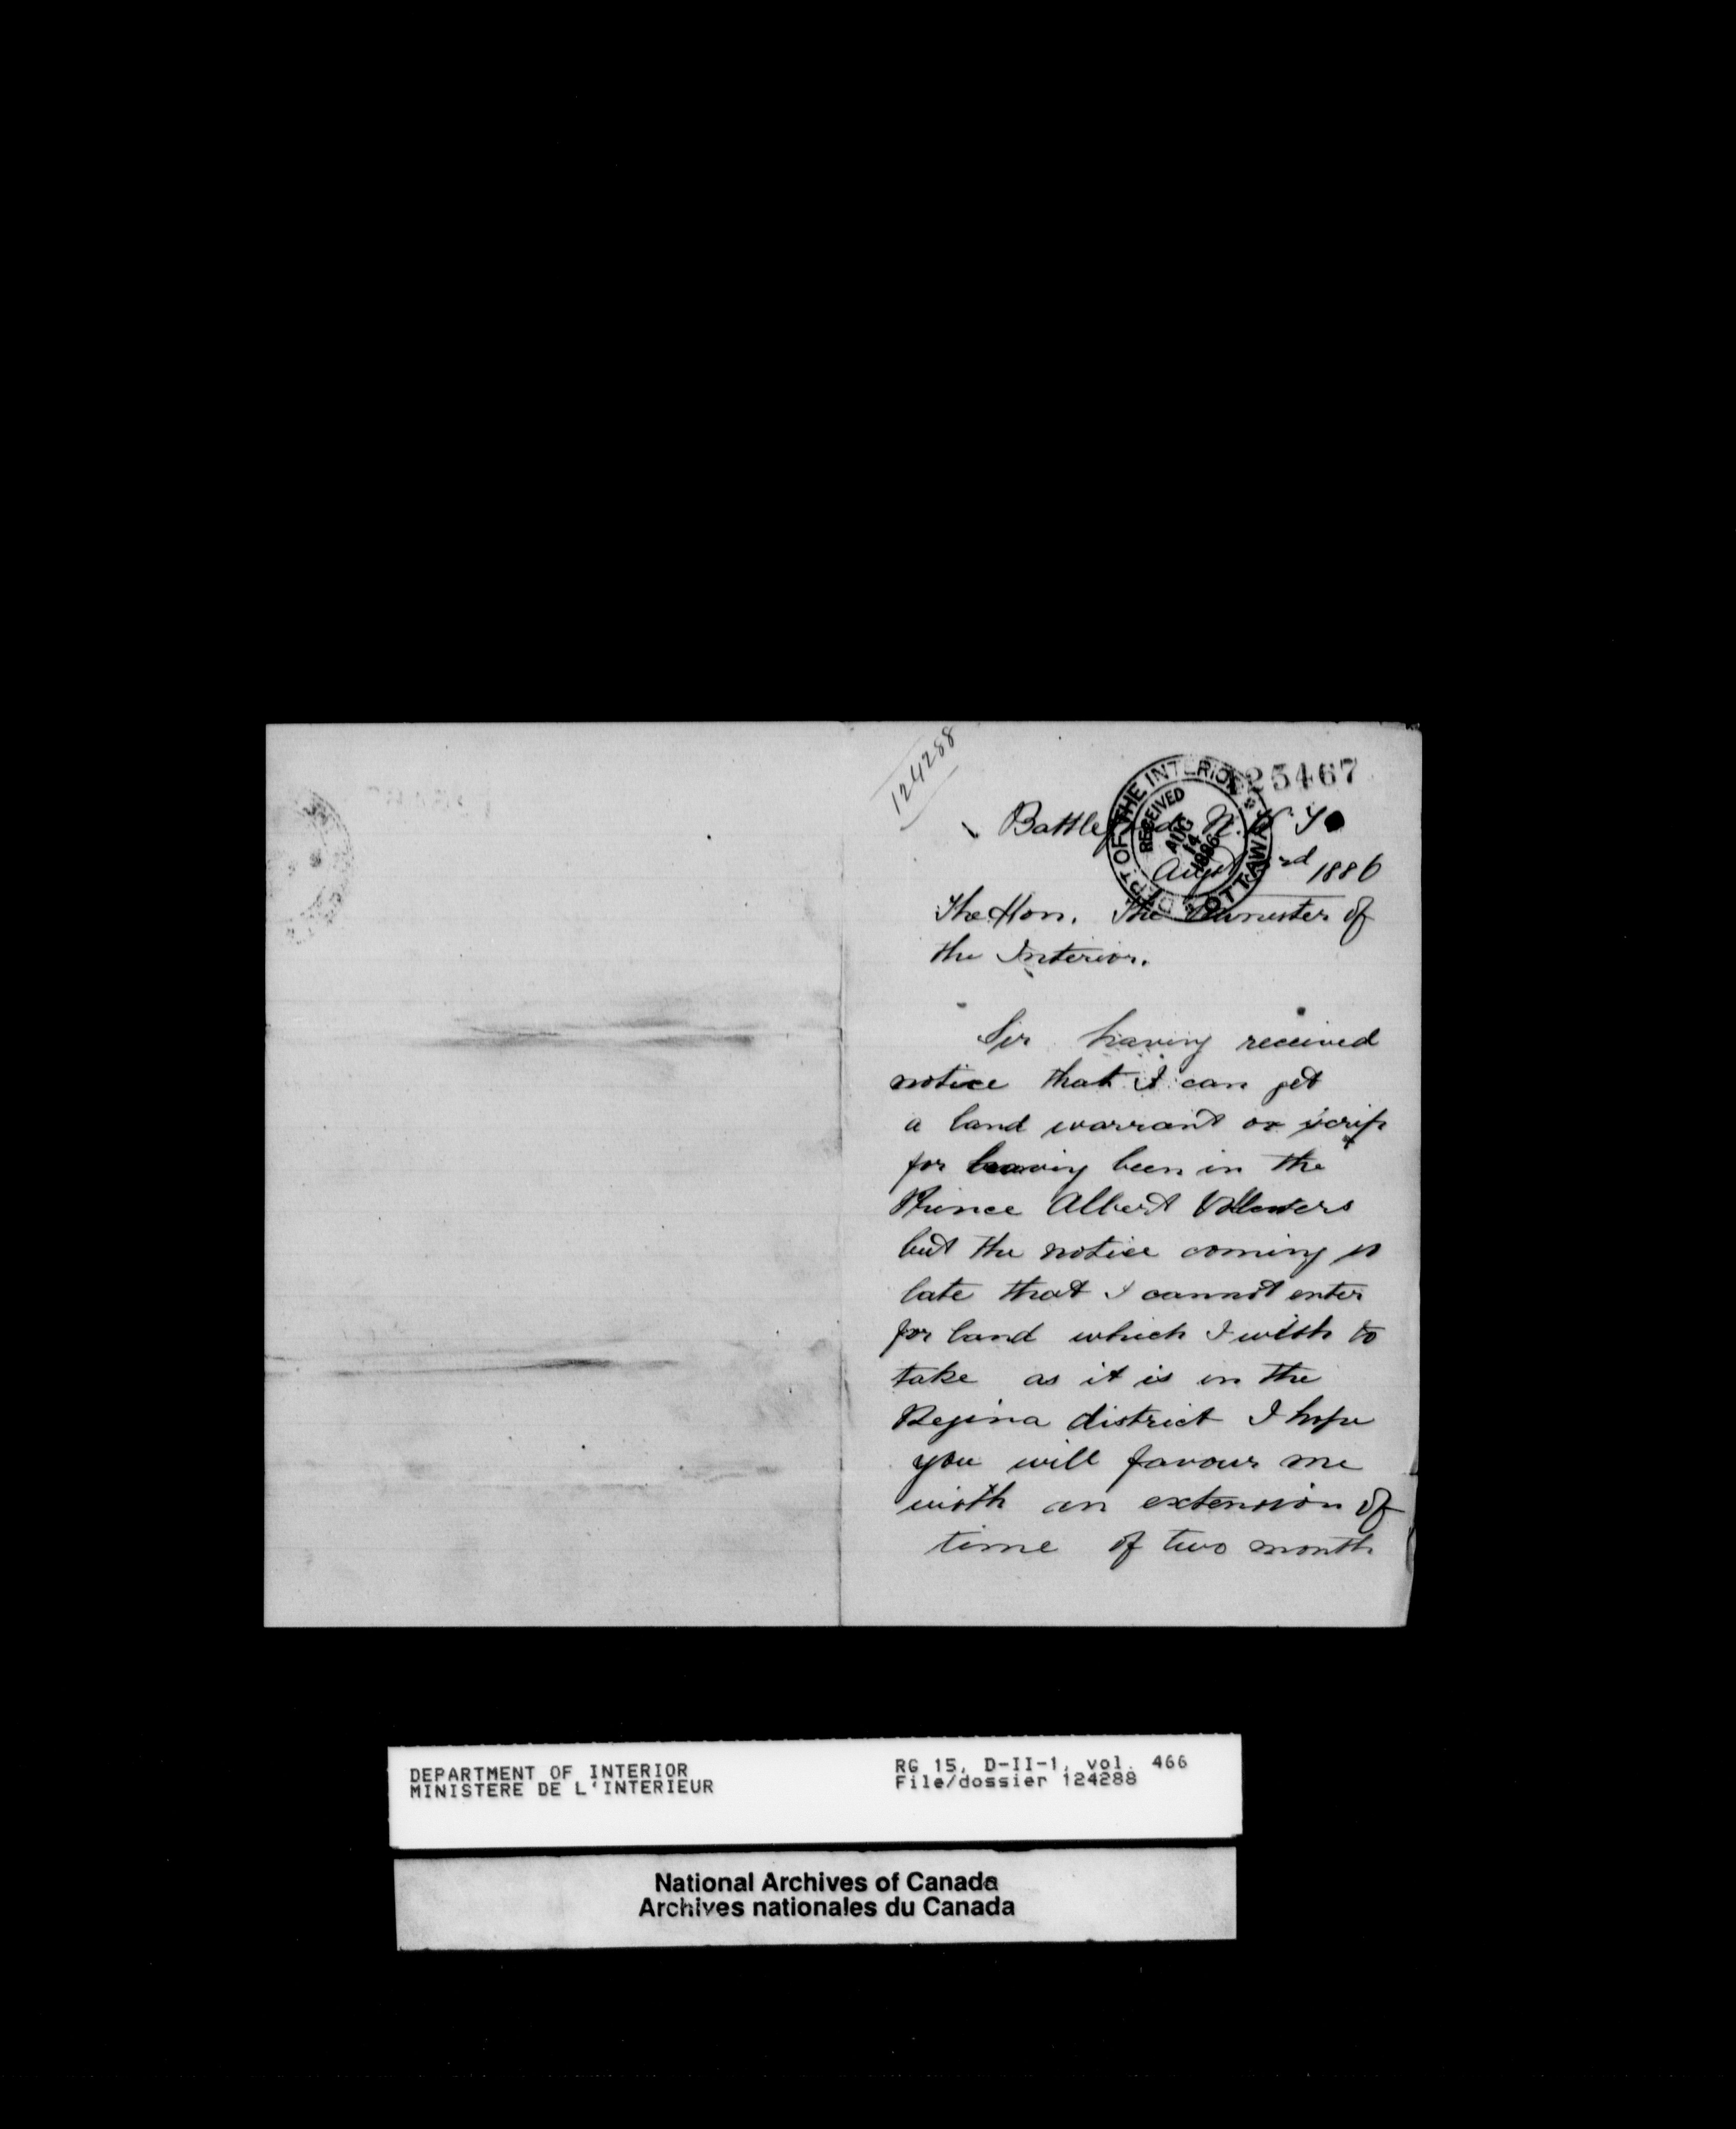 124288
25467
DEPT OF THE INTERIOR
OTTAWA
RECEIVED
AUG
14
1886
Battleford N.W.T.
Augst 3rd 1886
The Hon. The Minister of
the Interior.
Sir having received
notice that I can get
a land warrant or scrip
for having been in the
Prince Albert
but the notice coming so
late that I cannot enter
for land which I wish to
take as it is in the
Regina district I hope
you will favour me
with an extension of
time of two month
DEPARTMENT OF INTERIOR
MINISTERE DE L'INTERIEUR
RG 15, D-II-1, vol. 466
File/dossier 124288
National Archives of Canada
Archives nationales du Canada